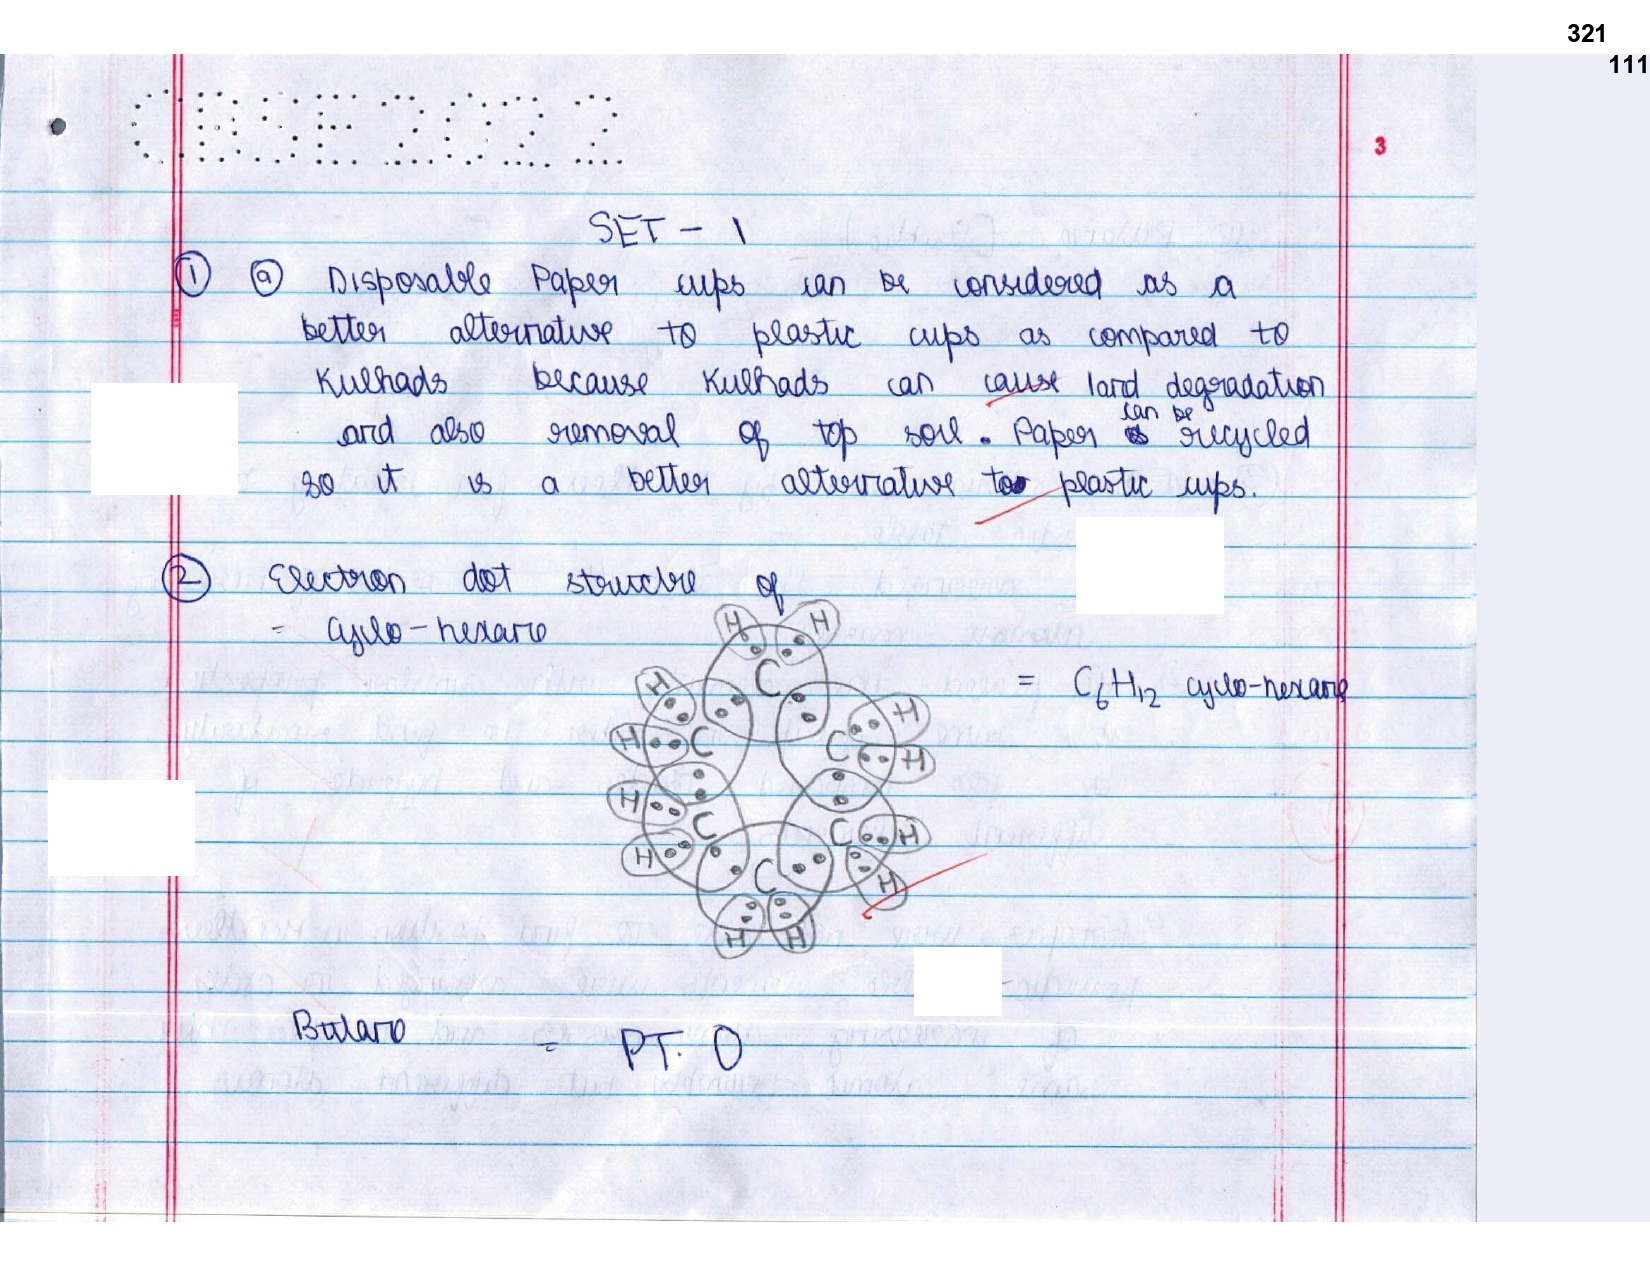 321
111
CBSE 2022
3
SET - 1
1 a Disposable Paper cups can be considered as a
better alternative to plastic cups as compared to
Kulhads because Kulhads can cause land degradation
can be
and also removal of top soil. Paper recycled
so it is a better alternative to plastic cups.
2 Electron dot structure of
= Cyclo-hexane
H H
C
= C6H12 cyclo-hexane
H H
H C C H
H C C H
H H
C
H H
Butane = P.T.O